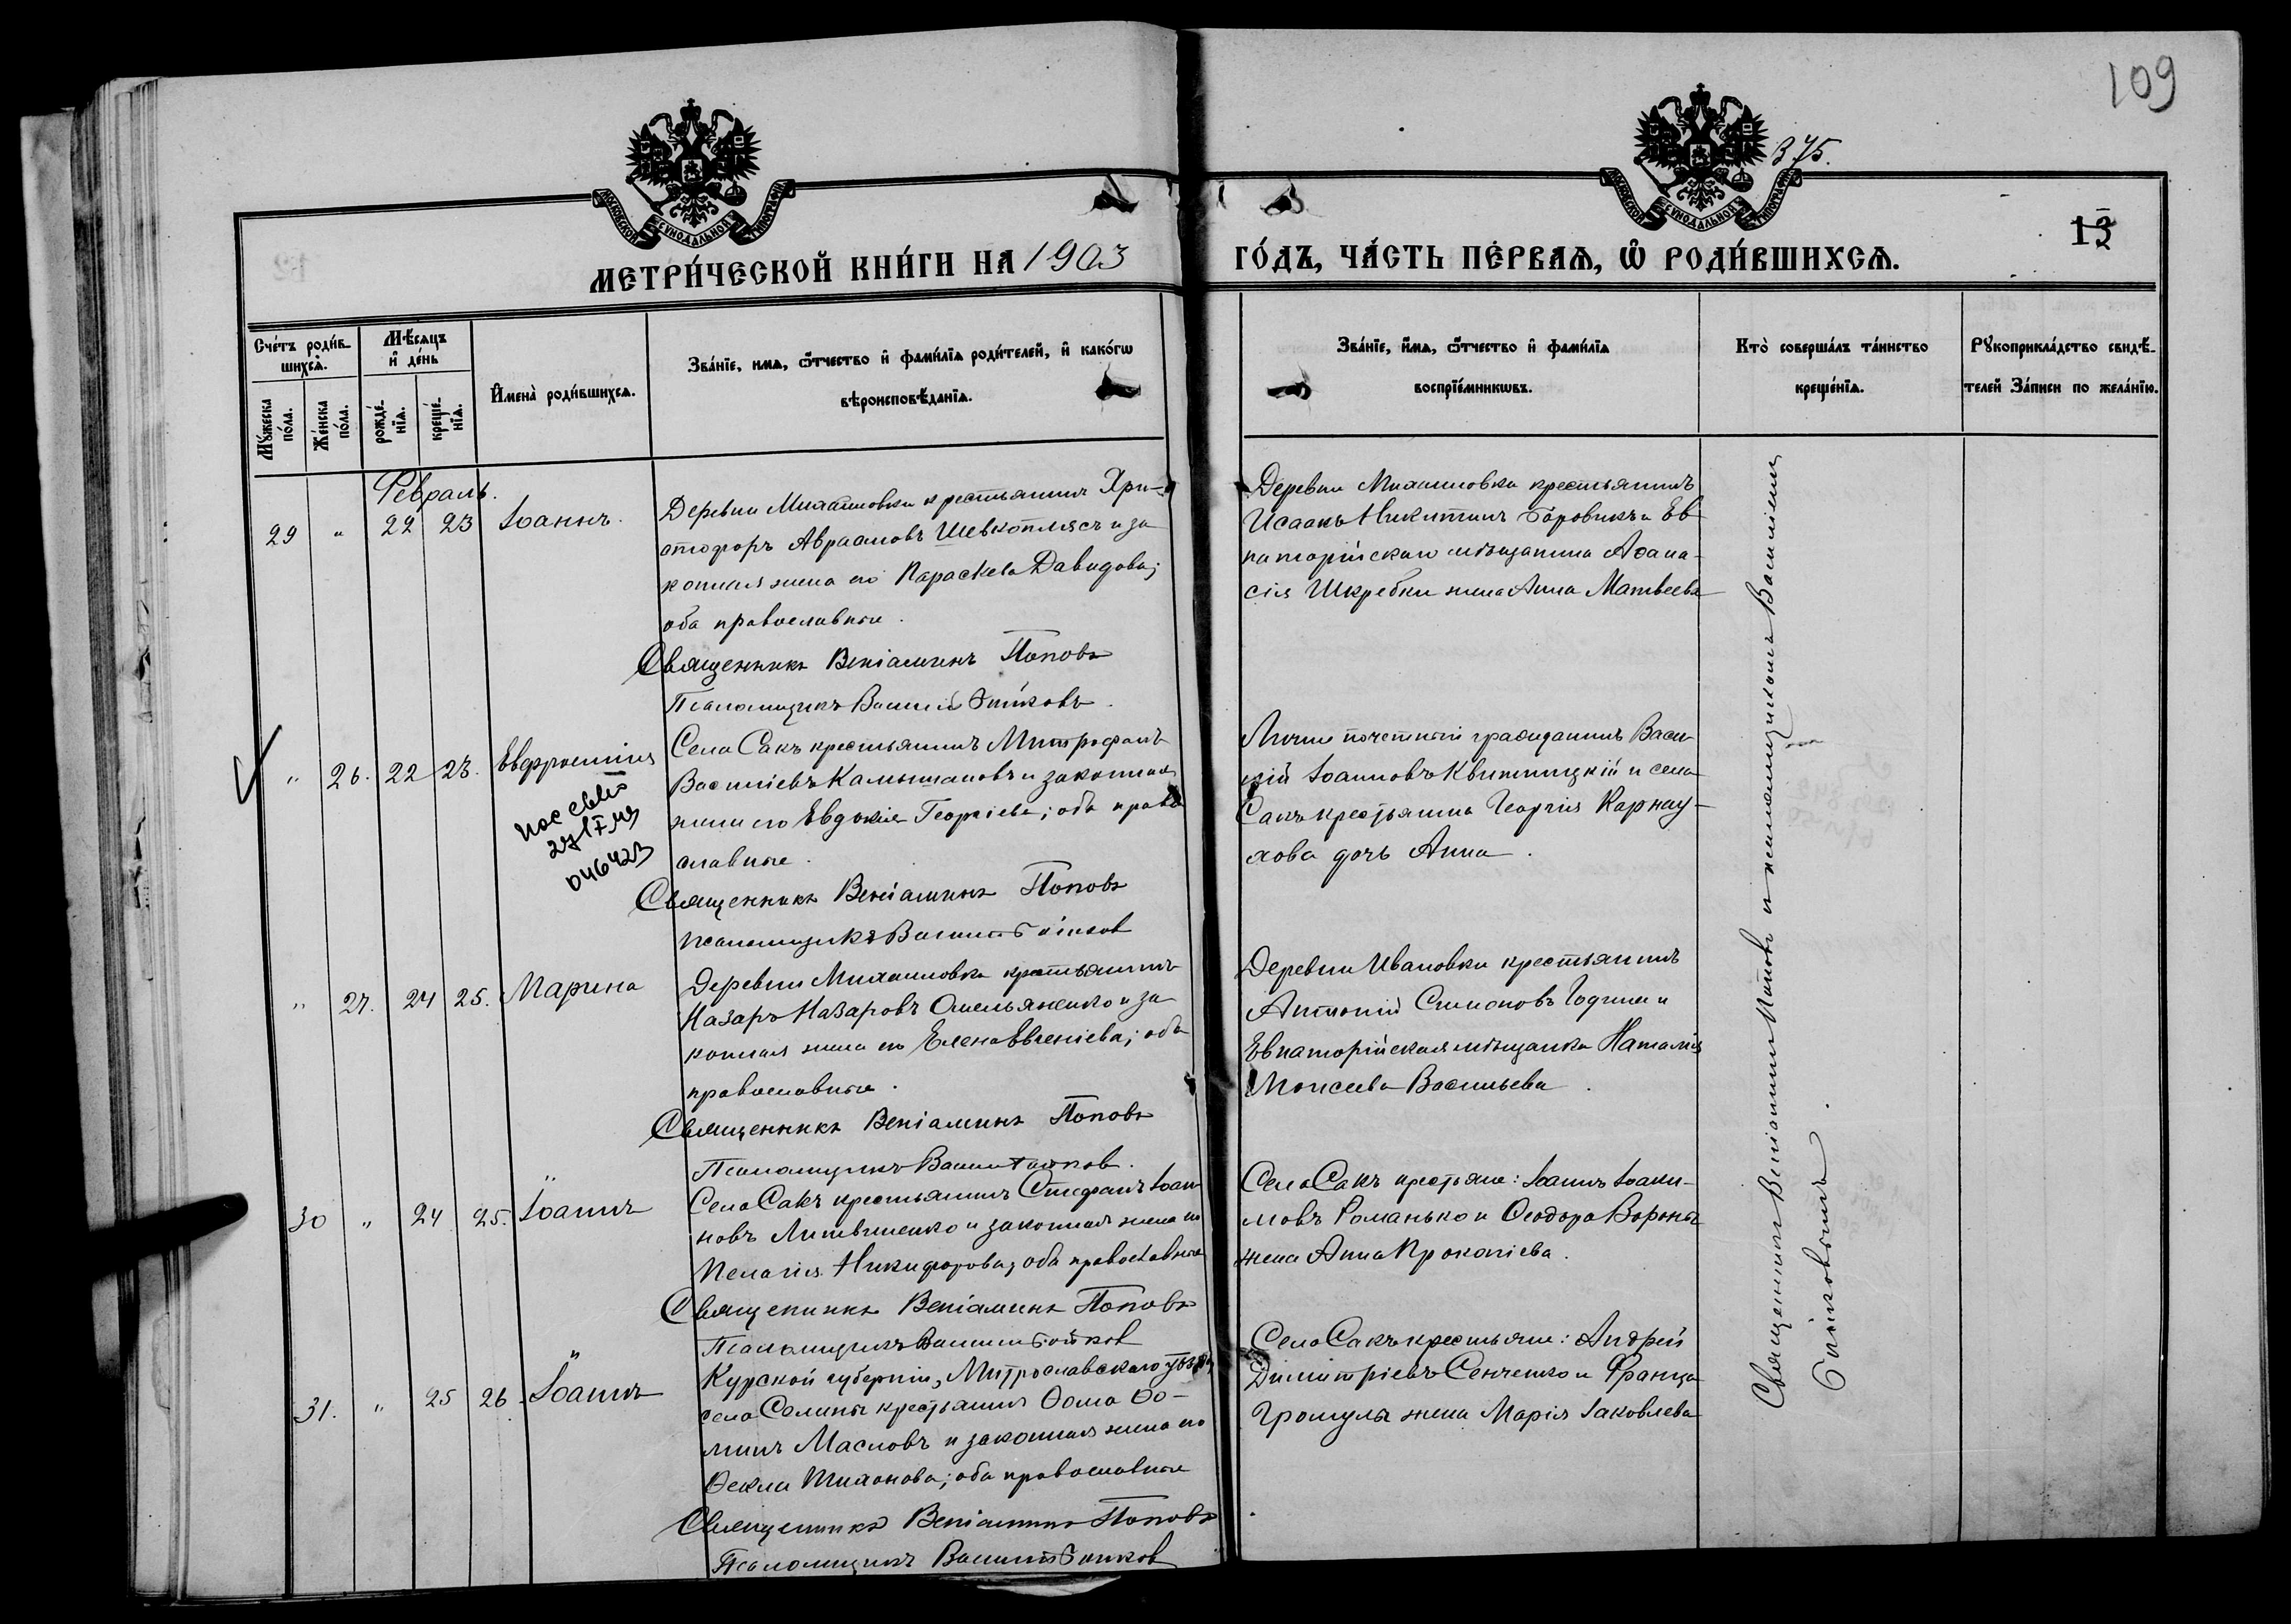 109
375.
МОСКОВСКОЙ СѴНОДАЛЬНОЙ ТИПОГРАФІИ
МОСКОВСКОЙ СѴНОДАЛЬНОЙ ТИПОГРАФІИ
13
МЕТРИ́ЧЕСКОЙ КНИ́ГИ НА 1903
ГО́ДЪ, ЧА́СТЬ ПЕ́РВАѦ, Ѡ҆ РОДИ́ВШИХСѦ.
Сче́тъ роди́в-
шихсѧ.
Мꙋ́жеска по́ла.
Же́нска по́ла.
Мѣ́сѧцъ и҆ де́нь
рожде́-нїѧ.
креще́-нїѧ.
И҆мена̀ роди́вшихсѧ.
Зва́нїе, и҆́мѧ, ѻ҆́тчество и҆ фами́лїѧ роди́телей, и҆ како́гѡ
вѣроисповѣ́данїѧ.
Зва́нїе, и҆́мѧ, ѻ҆́тчество и҆ фами́лїѧ
воспрїе́мникѡвъ.
Кто̀ соверша́лъ та́инство
креще́нїѧ.
Рꙋкоприкла́дство свидѣ́-
телей за́писи по жела́нїю.
Февраль.
29 " 22 23 Іоаннъ.
Деревни Михайловки крестьянинъ Хри-
стофоръ Авраамовъ Шевкоплясъ и за
конная жена его Параскева Давидова;
оба православные.
Священникъ Веніаминъ Поповъ
Псаломщикъ Василій
Деревни Михайловки крестьянинъ
Исаакъ Никитинъ Боровикъ и Ев
паторійскаго мѣщанина Аѳана-
сія Шкребки жена Анна Матвеева
" 26. 22 23. Евфросинія
27/IV
046423
Села Сакъ крестьянинъ Митрофанъ
Василіевъ Камышановъ и законная
жена его Евдокія Георгіева; оба право
славные.
Священникъ Веніаминъ Поповъ
Псаломщикъ Василій
Лично почетный гражданинъ Васи-
лій Іоанновъ Квитницкій и села
Сакъ крестьянина Георгія Карнау-
хова дочь Анна.
" 27. 24 25. Марина
Деревни Михайловки крестьянинъ
Назаръ Назаровъ Омельяненко и за
конная жена его Елена Евгеніева; оба
православные.
Священникъ Веніаминъ Поповъ
Псаломщикъ Василій
Деревни Ивановки крестьянинъ
Антоній Симоновъ Година и
Евпаторійская мѣщанка Наталія
Моисеева Васильева.
30 " 24 25. Іоаннъ
Села Сакъ крестьянинъ Стефанъ Іоан
новъ Литвиненко и законная жена его
Пелагія Никифорова; оба православные
Священникъ Веніаминъ Поповъ
Псаломщикъ Василій
Села Сакъ крестьяне: Іоаннъ Іоаки-
мовъ Романько и Ѳеодора Вороны
жена Анна Прокопіева.
31. " 25 26. Іоаннъ
Курской губерніи, уѣзда
села Селины крестьянинъ Ѳома Ѳо-
минъ Масловъ и законная жена его
Ѳекла Тихонова; оба православные
Священникъ Веніаминъ Поповъ
Псаломщикъ Василій
Села Сакъ крестьяне: Андрей
Димитріевъ Сенченко и Франца
Громулы жена Марія Іаковлева
Священникъ Веніаминъ Поповъ и псаломщикомъ Василіемъ